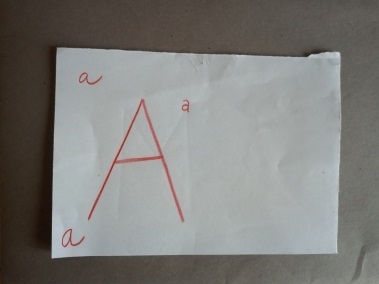 a
a
A
a